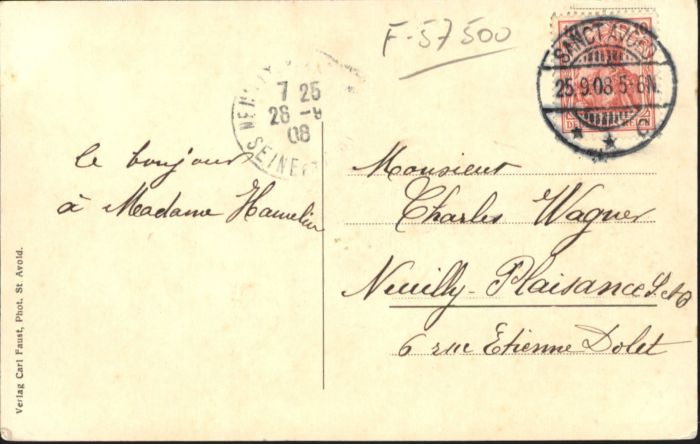 F-57500
SANCT AVOLD
25.9.08 5-6N.
C
7 25
26 -9
08
SEINE
le bonjour
à Madame Hamelin
Monsieur
Charles Wagner
Neuilly-Plaisance S.&O
6 rue Etienne Dolet
Verlag Carl Faust, Phot. St Avold.